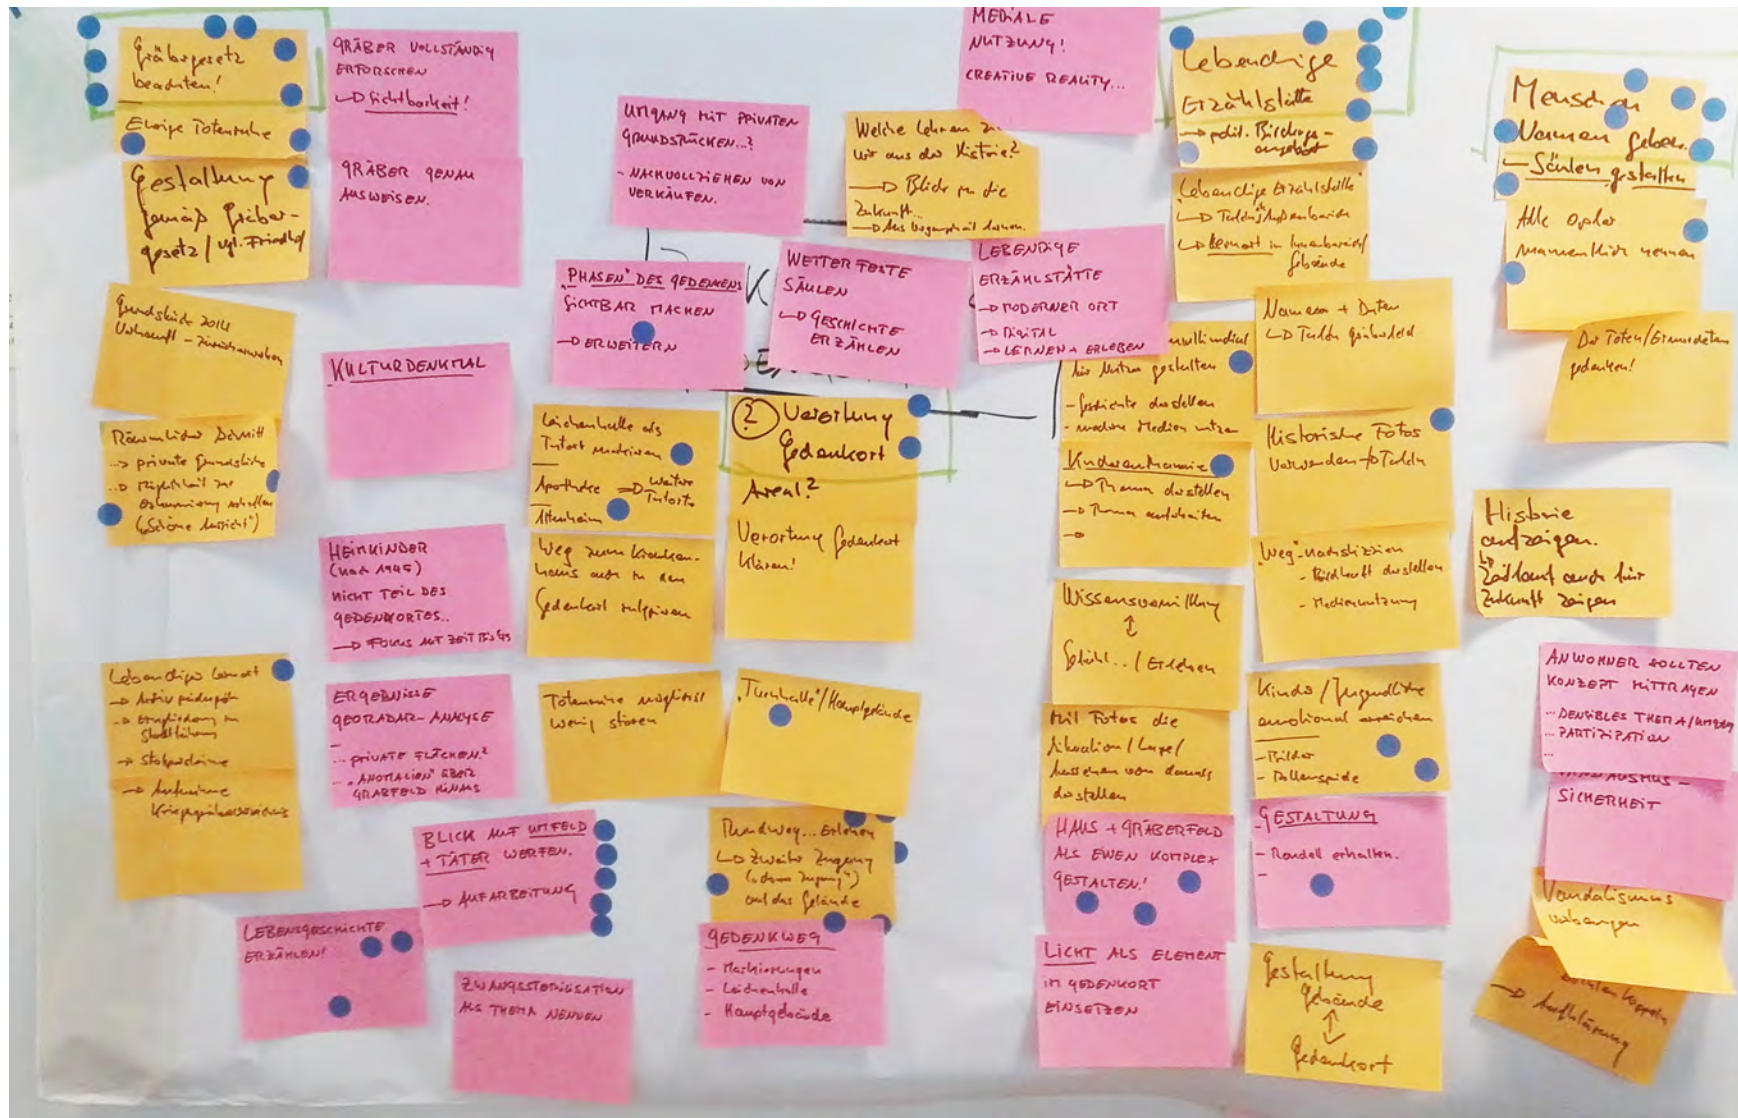 Gräbergesetz
beachten!
Ewige Totenruhe
Gestaltung
gemäß Gräber-
gesetz / vgl. Friedhof
Grundstücke 2014
Räumlicher
→ private Grundstücke
→ Möglichkeit zur
("Schöne Aussicht")
Lebendiger Lernort
→ Stolpersteine
GRÄBER VOLLSTÄNDIG
ERFORSCHEN
↳ Sichtbarkeit!
GRÄBER GENAU
AUSWEISEN.
KULTURDENKMAL
HEIMKINDER
(nach 1945)
NICHT TEIL DES
GEDENKORTES..
→ FOKUS AUF ZEIT
ERGEBNISSE
GEORADAR-ANALYSE
–
... PRIVATE FLÄCHEN?
... "ANOMALIEN" ÜBER
GRABFELD HINAUS
BLICK AUF UMFELD
+ TÄTER WERFEN.
→ AUFARBEITUNG
LEBENSGESCHICHTE
ERZÄHLEN!
ZWANGSSTERILISATION
ALS THEMA NENNEN
UMGANG MIT PRIVATEN
GRUNDSTÜCKEN...?
- NACHVOLLZIEHEN VON
VERKÄUFEN.
"PHASEN" DES GEDENKENS
SICHTBAR MACHEN
→ ERWEITERN
Leichenhalle als
Tatort markieren
Apotheke → weitere
Tatorte
Altenheim
Weg zum Kranken-
haus auch in den
Gedenkort integrieren
Totenruhe möglichst
wenig stören
WETTERFESTE
SÄULEN
↳ GESCHICHTE
ERZÄHLEN
? Verortung
Gedenkort
Areal?
Verortung Gedenkort
klären!
"Turnhalle"/Hauptgebäude
Rundweg... Erleben
↳ Zweiter Zugang
auf das Gelände
GEDENKWEG
- Markierungen
- Leichenhalle
- Hauptgebäude
MEDIALE
NUTZUNG!
CREATIVE REALITY...
Welche Lehren
wir aus der Historie?
→ Blick in die
Zukunft...
→ Aus Vergangenheit lernen.
LEBENDIGE
ERZÄHLSTÄTTE
→ MODERNER ORT
→ DIGITAL
→ LERNEN + ERLEBEN
multimedial
für Nutzer gestalten
- Geschichte darstellen
- moderne Medien nutzen
Kindereuthanasie
↳ Thema darstellen
→ Thema aufarbeiten
→
Wissensvermittlung
↕
Gefühl.. / Erleben
Mit Fotos die
Situation / Lage /
Aussehen von damals
darstellen
HAUS + GRÄBERFELD
ALS EINEN KOMPLEX
GESTALTEN!
LICHT ALS ELEMENT
IM GEDENKORT
EINSETZEN
Lebendige
Erzählstätte
→ polit. Bildungs-
angebot
"Lebendige Erzählstätte"
↳ Tafeln Außenbereich
↳ Lernort im Innenbereich/
Gebäude
Namen + Daten
↳ Tafeln Gräberfeld
Historische Fotos
verwenden → Tafeln
"Weg" nachskizzieren
- Bildhaft darstellen
- Mediennutzung
Kinder / Jugendliche
emotional erreichen
- Bilder
- Rollenspiele
GESTALTUNG
- Rondell erhalten.
-
Gestaltung
Gebäude
↕
Gedenkort
Menschen
Namen geben.
- Säulen gestalten
Alle Opfer
namentlich nennen
Der Toten/Ermordeten
gedenken!
Historie
aufzeigen.
↳
Zeitlauf auch für
Zukunft zeigen
ANWOHNER SOLLTEN
KONZEPT MITTRAGEN
... SENSIBLES THEMA/
... PARTIZIPATION
...
SICHERHEIT
Vandalismus
vorbeugen
→ Aufklärung